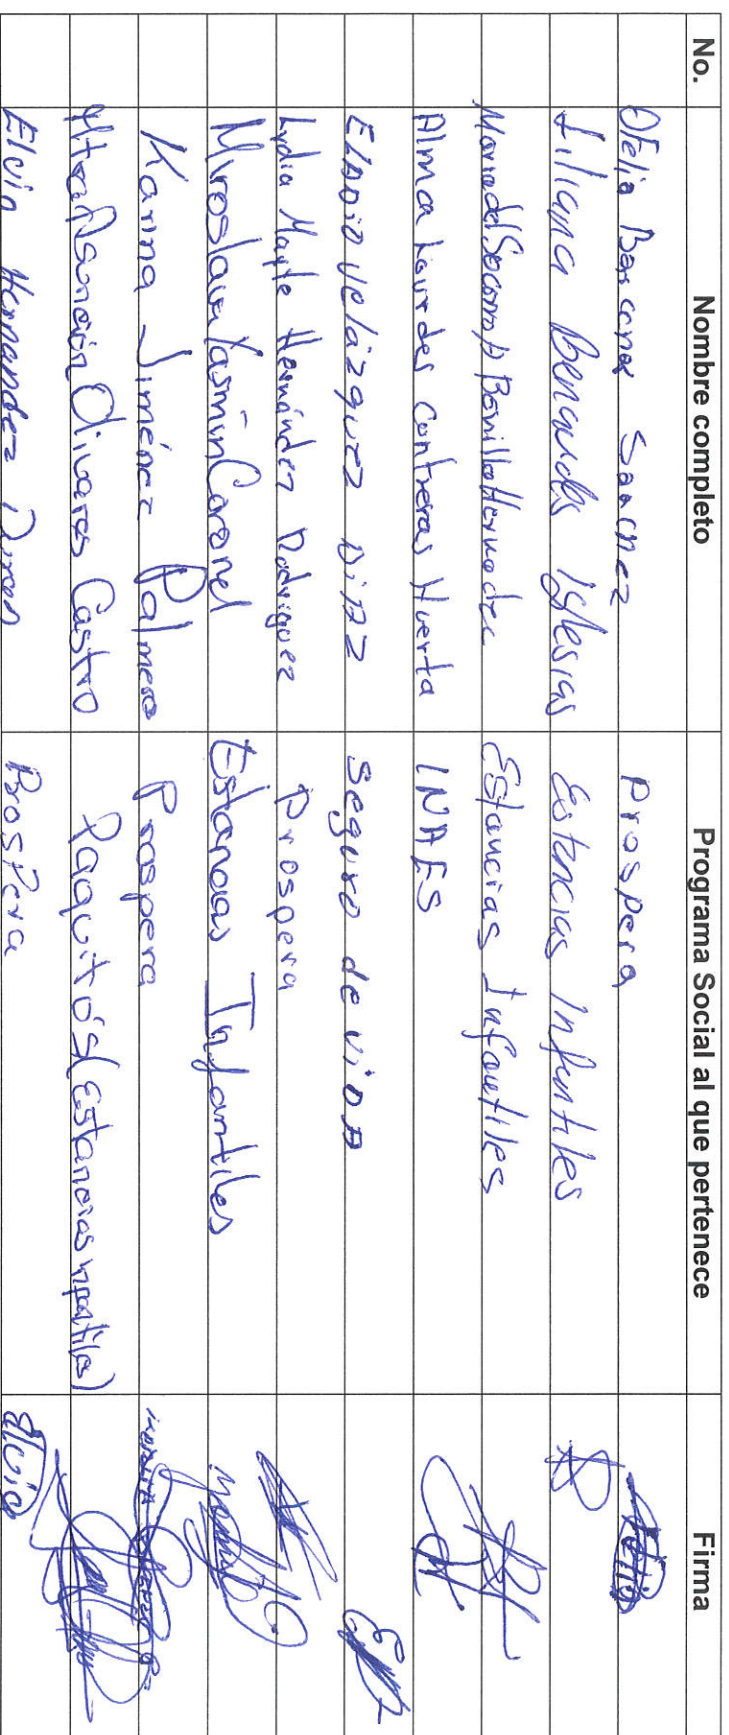 No. Nombre completo Programa Social al que pertenece Firma
Ofelia Sanchez Prospera
Liliana Benavides Iglesias Estancias Infantiles
Maria del Socorro Bonilla Hernadez Estancias Infantiles
Alma Lourdes Contreras Huerta INAES
ELADIO VELázquez DiAZ Seguro de viDA
Lydia Mayte Hernández Rodriguez Prospera
Miroslava Yasmin Coronel Estancias Infantiles
Karina Jiménez Palmero Prospera
Asención Olivares Castro Paquitós (Estancias infatiles)
Elvia Hernandez Duran Prospera elvia